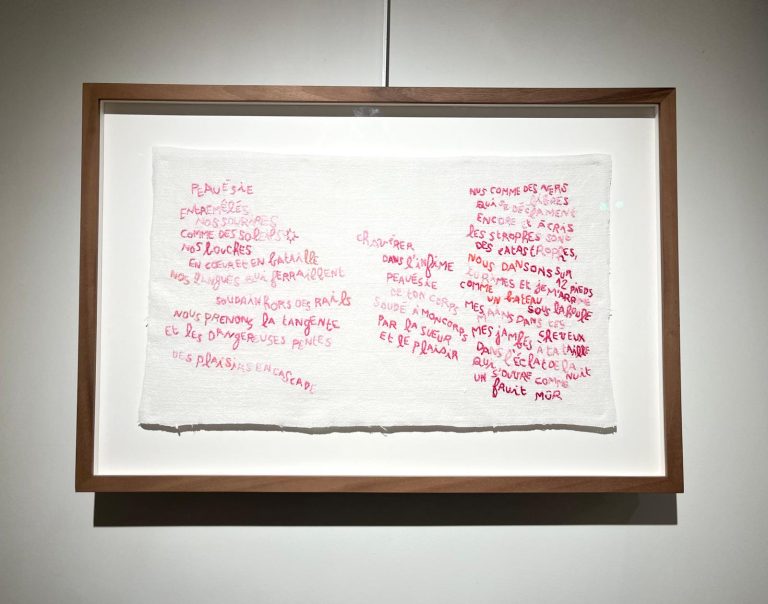 PEAUÉSIE
ENTREMÊLÉS
NOS SOURIRES
COMME DES SOLEILS
NOS bOUCHES
EN COEUR ET EN bATAILLE
NOS LANGUES QUI FERRAILLENT
SOUDAIN HORS DES RAILS
NOUS PRENONS LA TANGENTE
ET LES DANGEREUSES PENTES
DES PLAISIRS EN CASCADE
CHAVIRER
DANS L'INFIME
PEAUÉSIE
DE TON CORPS
SOUDÉ À MON CORPS
PAR LA SUEUR
ET LE PLAISIR
NUS COMME DES VERS
LIBRES
QUI SE DÉCLAMENT
ENCORE ET À CRIS
LES STROPHES SONT
DES CATASTROPHES,
NOUS DANSONS SUR
12 PIEDS
TU RIMES ET JE M'ARRIME
COMME UN bATEAU
SOUS LA HOULE
MES MAINS DANS TES
CHEVEUX
MES JAMbES À TA TAILLE
DANS L'ÉCLAT DE LA
NUIT
QUI S'OUVRE COMME
UN FRUIT MÛR